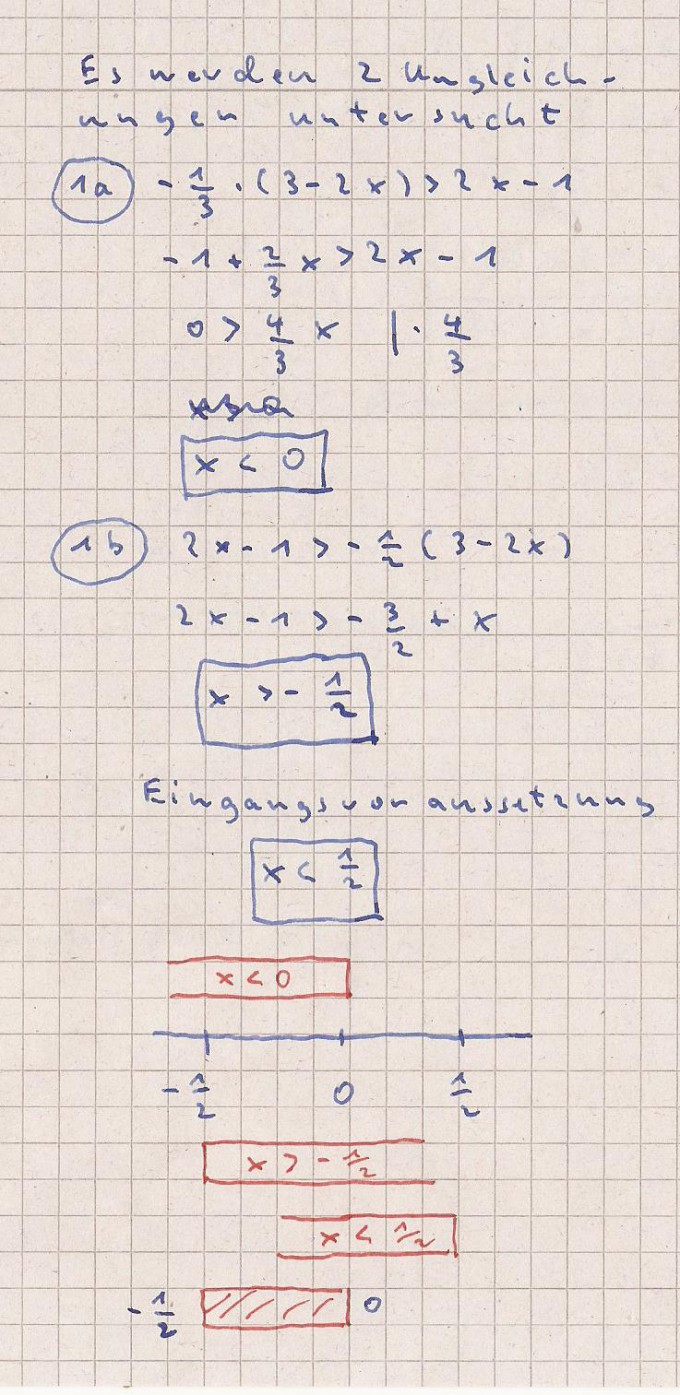 Es werden 2 Ungleich-
ungen untersucht
1a -1/3 · (3 - 2x) > 2x - 1
-1 + 2/3 x > 2x - 1
0 > 4/3 x | · 4/3
x < 0
1b 2x - 1 > -1/2 (3 - 2x)
2x - 1 > -3/2 + x
x > -1/2
Eingangsvoraussetzung
x < 1/2
x < 0
-1/2 0 1/2
x > -1/2
x < 1/2
-1/2 0